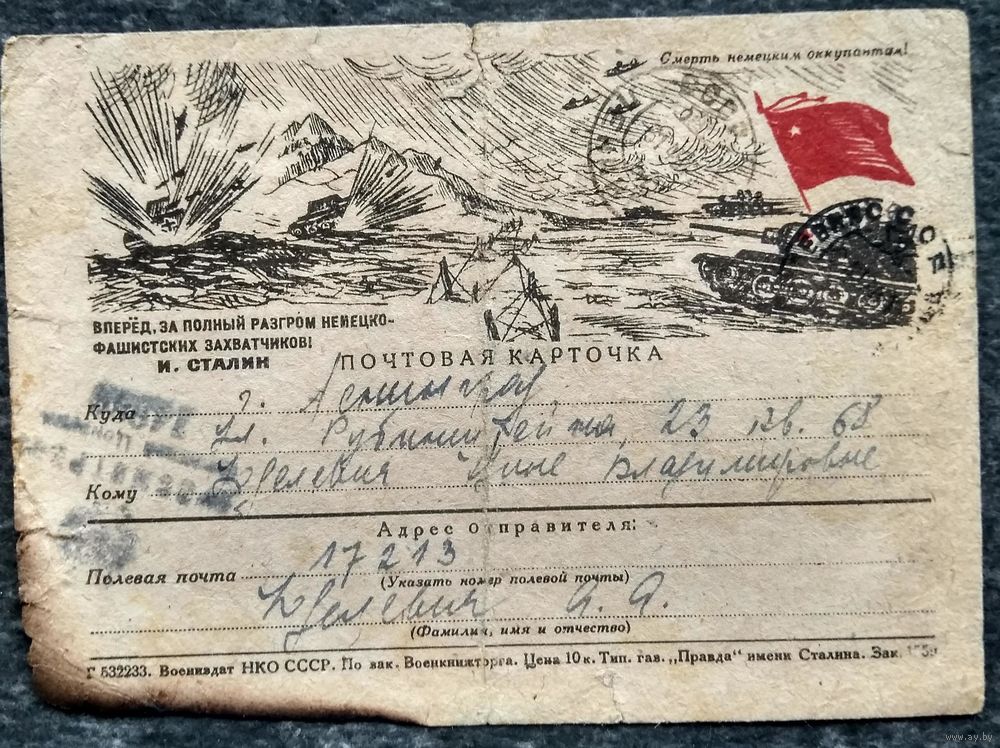 Смерть немецким оккупантам!
ВПЕРЁД, ЗА ПОЛНЫЙ РАЗГРОМ НЕМЕЦКО-
ФАШИСТСКИХ ЗАХВАТЧИКОВ!
И. СТАЛИН
ПОЧТОВАЯ КАРТОЧКА
Куда г. Ленинград
ул. Рубинштейна, 23 кв. 68
Кому Владимировне
Адрес отправителя:
Полевая почта 17213
(Указать номер полевой почты)
(Фамилия, имя и отчество)
Г 532233. Воениздат НКО СССР. По зак. Военкнижторга. Цена 10 к. Тип. газ. „Правда" имени Сталина. Зак.
www.ay.by